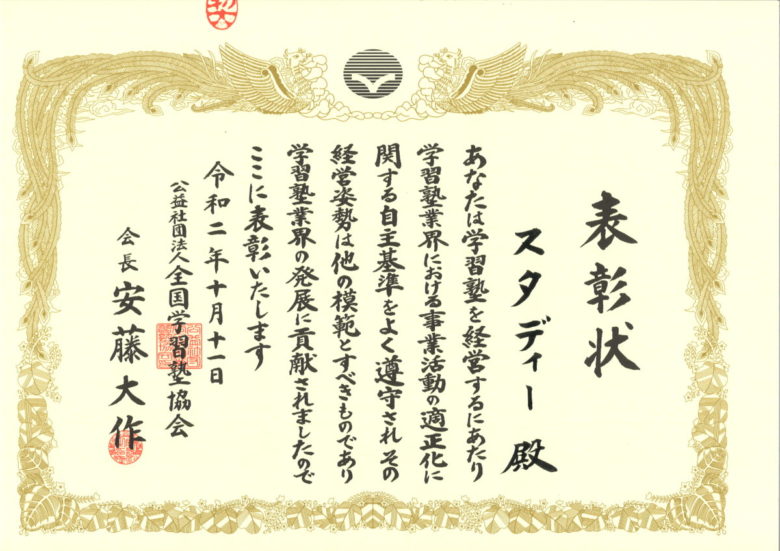 表彰状
スタディー 殿
あなたは学習塾を経営するにあたり
学習塾業界における事業活動の適正化に
関する自主基準をよく遵守されその
経営姿勢は他の模範とすべきものであり
学習塾業界の発展に貢献されましたので
ここに表彰いたします
令和二年十月十一日
公益社団法人全国学習塾協会
会長 安藤大作